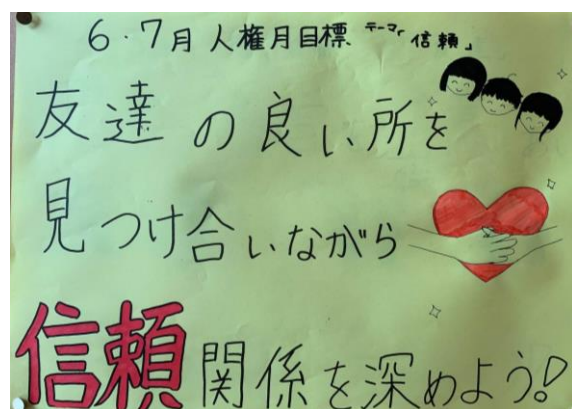 6・7月人権月目標 テーマ「信頼」
友達の良い所を
見つけ合いながら
信頼関係を深めよう!